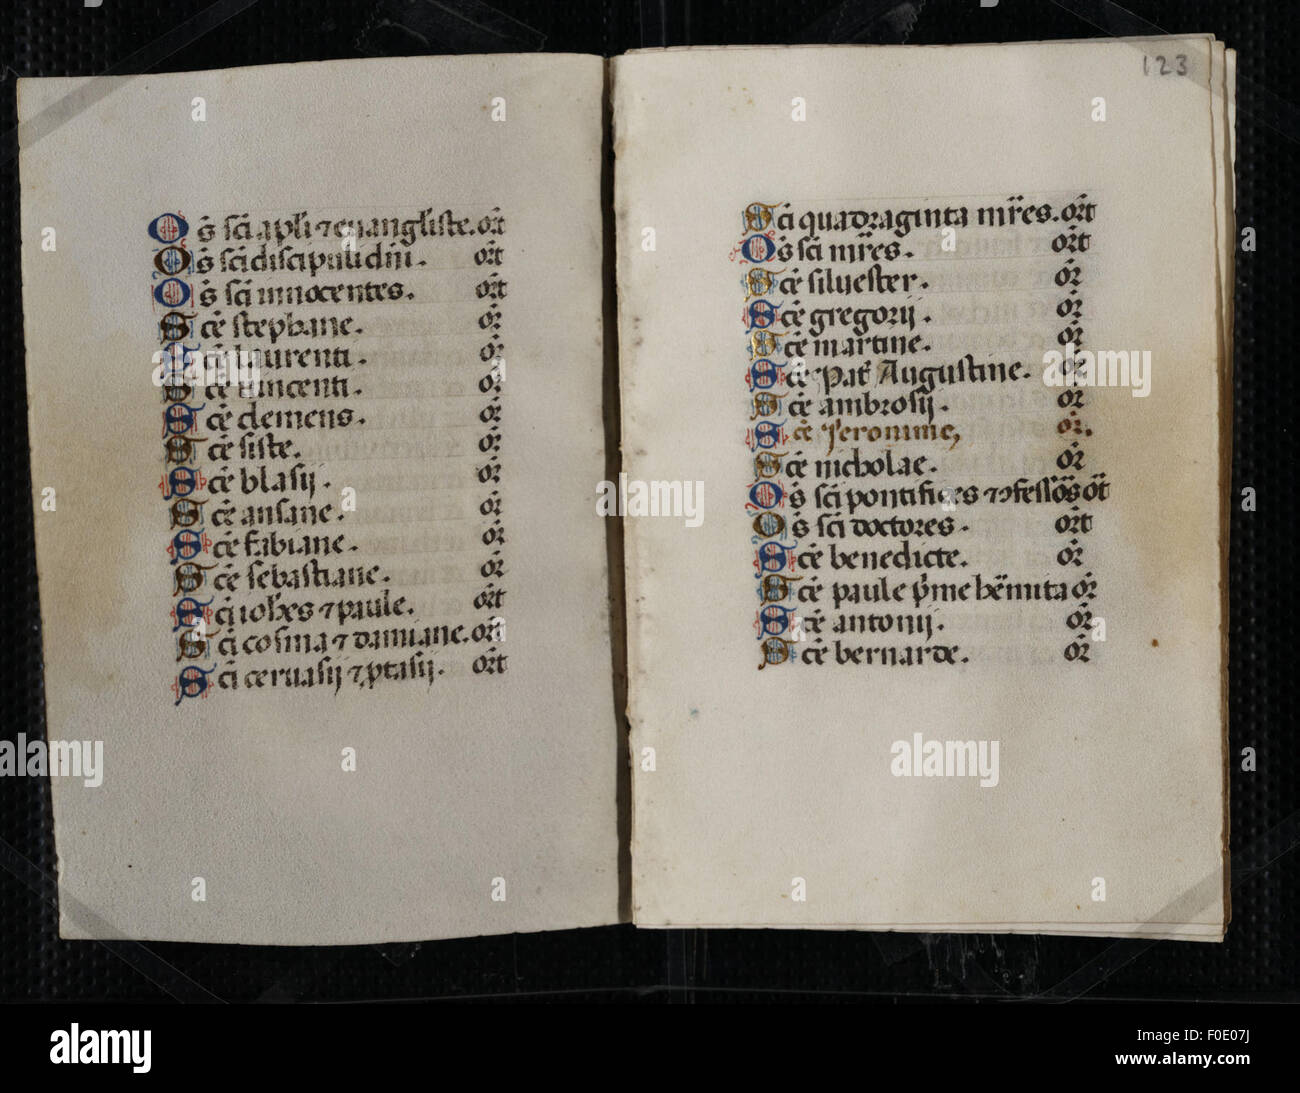 Os̄ sc̄i apl̄i ⁊ euangl̄iste. or̄t
Os̄ sc̄i discipuli dn̄i. or̄t
Os̄ sc̄i innocentes. or̄t
Sc̄e stephane. or̄
Sc̄e laurenti. or̄
Sc̄e uincenti. or̄
Sc̄e clemens. or̄
Sc̄e siste. or̄
Sc̄e blasij. or̄
Sc̄e ansane. or̄
Sc̄e fabiane. or̄
Sc̄e sebastiane. or̄
Sc̄i ioh̄es ⁊ paule. or̄t
Sc̄i cosma ⁊ damiane. or̄t
Sc̄i ceruasij ⁊ ꝓtasij. or̄t
123
Sc̄i quadraginta mr̄es. or̄t
Os̄ sc̄i mr̄es. or̄t
Sc̄e siluester. or̄
Sc̄e gregorij. or̄
Sc̄e martine. or̄
Sc̄e Pat̄ Augustine. or̄
Sc̄e ambrosij. or̄
Sc̄e Jeronime, or̄.
Sc̄e nicholae. or̄
Os̄ sc̄i pontifices ⁊ ꝯfessōs or̄t
Os̄ sc̄i doctores. or̄t
Sc̄e benedicte. or̄
Sc̄e paule p̄me her̄mita or̄
Sc̄e antonij. or̄
Sc̄e bernarde. or̄
alamy
Image ID: F0E07J
www.alamy.com